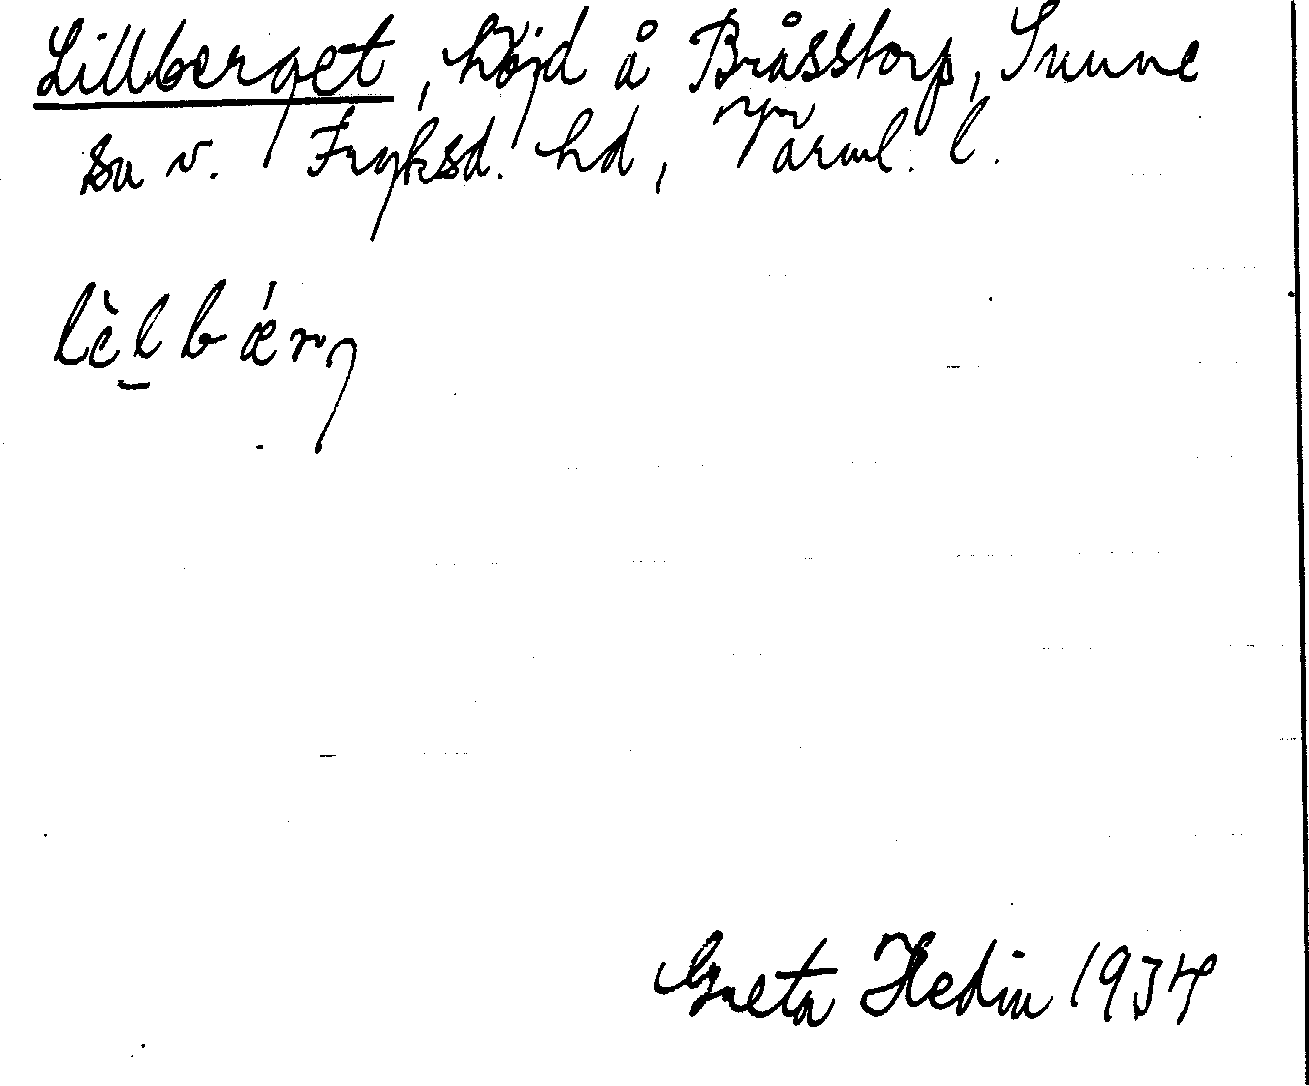 Lillberget, höjd å Bråsstorp, Sunne
sn v. Fryksd. hd, Värml. l.
lèl bǽrj
Greta Hedin 1934